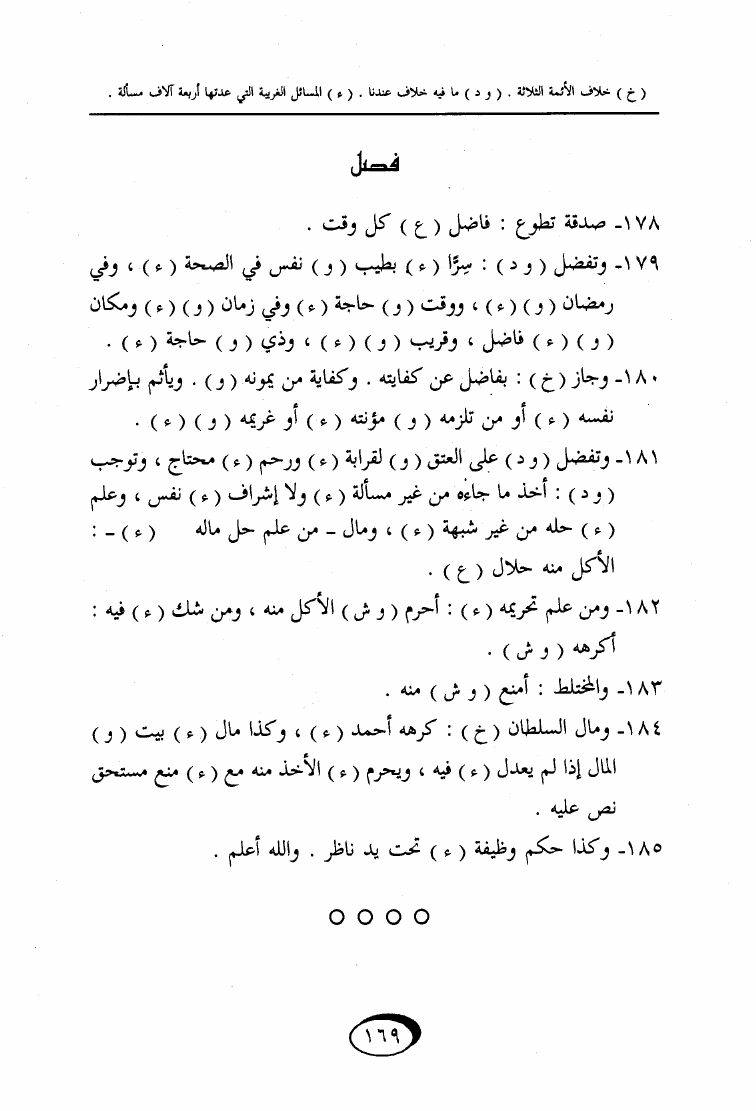 ( خ ) خلاف الأئمة الثلاثة . ( و د ) ما فيه خلاف عندنا . ( ء ) المسائل الغريبة التي عدتها أربعة آلاف مسألة .
فصل
١٧٨- صدقة تطوع : فاضل ( ع ) كل وقت .
١٧٩- وتفضل ( و د ) : سِرًّا ( ء ) بطيب ( و ) نفس في الصحة ( ء ) ، وفي
رمضان ( و ) ( ء ) ، ووقت ( و ) حاجة ( ء ) وفي زمان ( و ) ( ء ) ومكان
( و ) ( ء ) فاضل ، وقريب ( و ) ( ء ) ، وذي ( و ) حاجة ( ء ) .
١٨٠- وجاز ( خ ) : بفاضل عن كفايته . وكفاية من يمونه ( و ) . ويأثم بإضرار
نفسه ( ء ) أو من تلزمه ( و ) مؤنته ( ء ) أو غريمه ( و ) ( ء ) .
١٨١- وتفضل ( و د ) على العتق ( و ) لقرابة ( ء ) ورحم ( ء ) محتاج ، وتوجب
( و د ) : أخذ ما جاءه من غير مسألة ( ء ) ولا إشراف ( ء ) نفس ، وعلم
( ء ) حله من غير شبهة ( ء ) ، ومال – من علم حل ماله ( ء ) – :
الأكل منه حلال ( ع ) .
١٨٢- ومن علم تحريمه ( ء ) : أحرم ( و ش ) الأكل منه ، ومن شك ( ء ) فيه :
أكرهه ( و ش ) .
١٨٣- والمختلط : أمنع ( و ش ) منه .
١٨٤- ومال السلطان ( خ ) : كرهه أحمد ( ء ) ، وكذا مال ( ء ) بيت ( و )
المال إذا لم يعدل ( ء ) فيه ، ويحرم ( ء ) الأخذ منه مع ( ء ) منع مستحق
نص عليه .
١٨٥- وكذا حكم وظيفة ( ء ) تحت يد ناظر . والله أعلم .
١٦٩